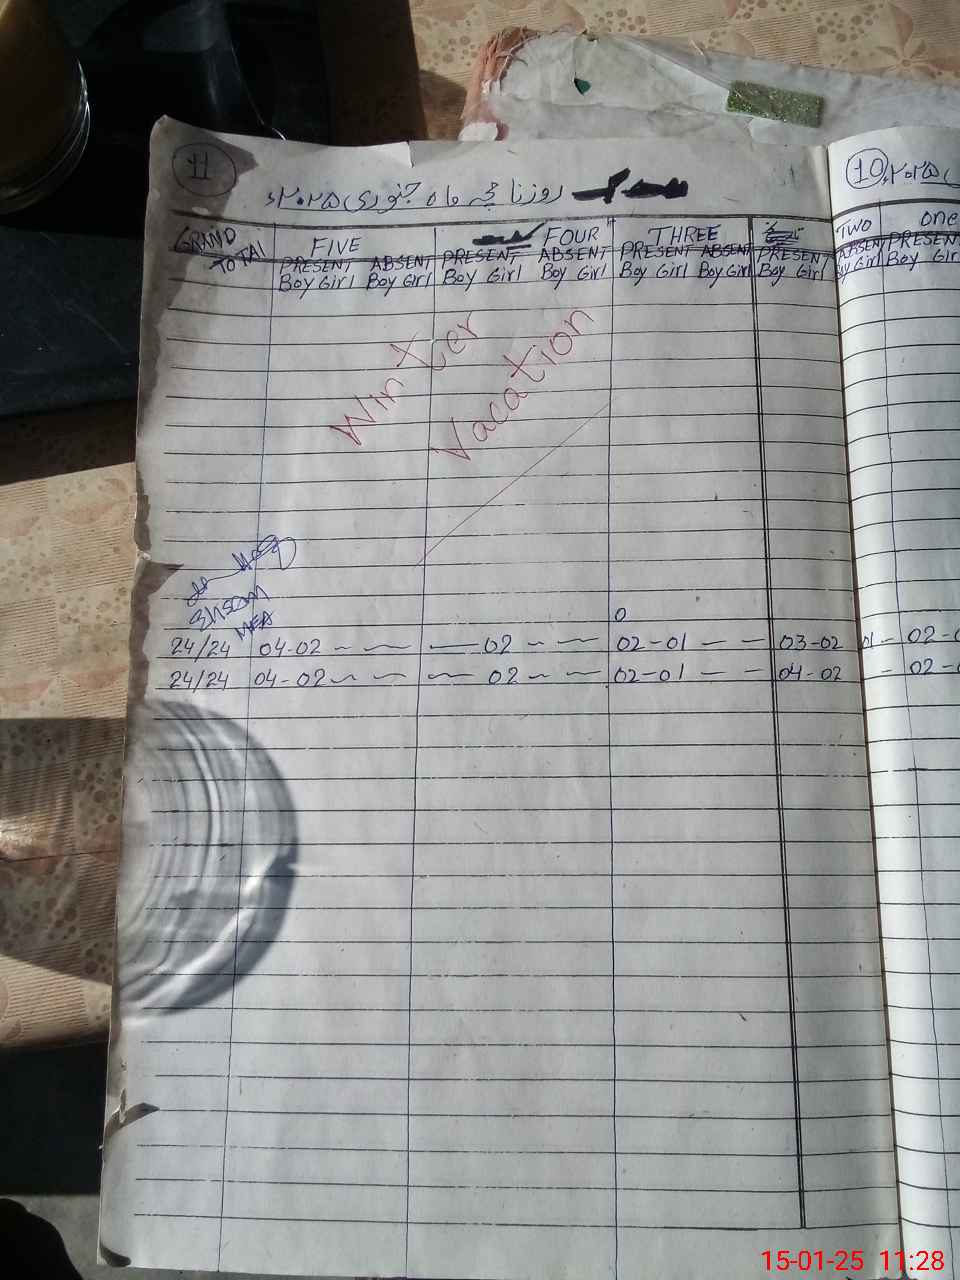 11
روزنامچہ ماہ جنوری ۲۰۲۵ء
10 ۲۰۲۵ء
GRAND TOTAL FIVE FOUR THREE TWO One
PRESENT ABSENT PRESENT ABSENT PRESENT ABSENT PRESENT ABSENT PRESENT
Boy Girl Boy Girl Boy Girl Boy Girl Boy Girl Boy Girl Boy Girl Boy Girl
Winter
Vacation
Ehsan
MEA
0
24/24 04-02 - - - 02 - - 02-01 - - 03-02 01 - 02-0
24/24 04-02 - - - 02 - - 02-01 - - 04-02 - 02-0
15-01-25 11:28